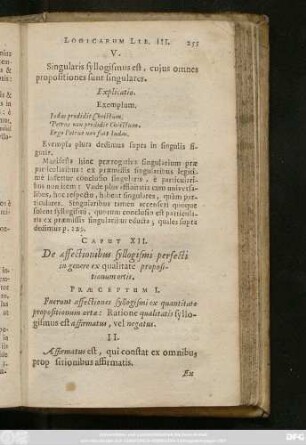 LOGICARUM LIB. III. 255
V.
Singularis syllogismus est, cujus omnes
propositiones sunt singulares.
Explicatio.
Exemplum.
Judas prodidit Christum.
Petrus non prodidit Christum.
Ergo Petrus non fuit Judas.
Exempla plura dedimus supra in singulis
figuris.
Manifesta hinc prærogativa singularium præ
particularibus: ex præmissis singularibus legiti-
me infertur conclusio singularis, è particulari-
bus non item: Unde plus affinitatis cum universa-
libus, hoc respectu, habent singulares, quàm parti-
culares. Singularibus tamen accenseri quoque
solent syllogismi, quorum conclusio est particula-
ris ex præmissis singularibus educta, quales supra
dedimus p. 225.
CAPUT XII.
De affectionibus syllogismi perfecti
in genere ex qualitate proposi-
tionum ortis.
PRÆCEPTUM I.
Fuerunt affectiones syllogismi ex quantitate
propositionum ortæ: Ratione qualitatis syllo-
gismus est affirmatus, vel negatus.
II.
Affirmatus est, qui constat ex omnibus
propositionibus affirmatis.
Ex